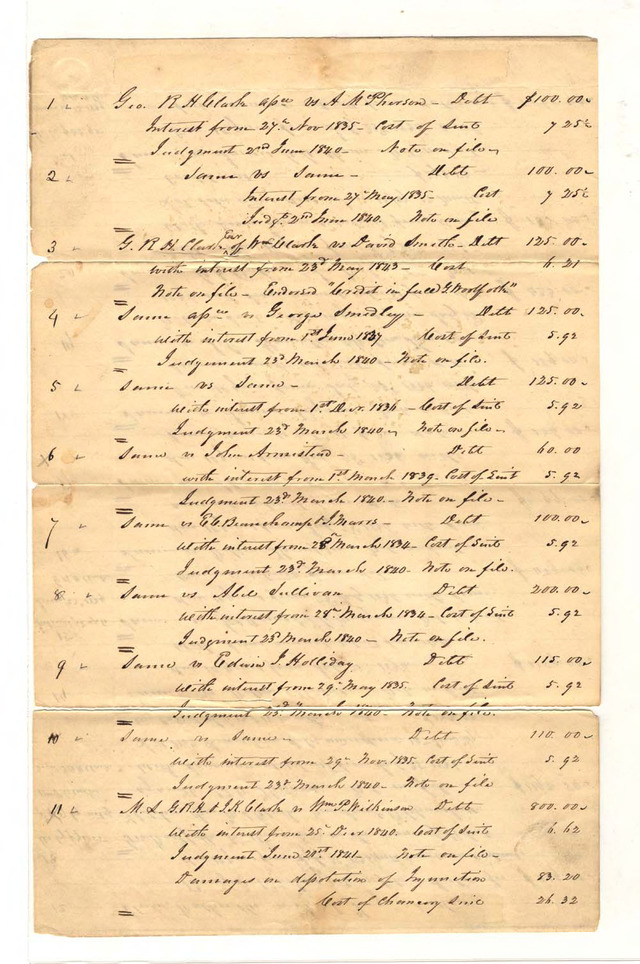 1 " Geo. R H Clark apee vs A McPherson - Debt $100.00
Interest from 27th Nov 1835 - Cost of Suit 7 25½
Judgment 2nd June 1840 - Note on file -
2 " Same vs Same - Debt 100.00
Interest from 27th May 1835 - Cost 7 25½
Judgt. 2nd June 1840. Note on file
3 " G. R H Clark Exor of Wm Clark vs David Smith - Debt 125.00
with interest from 23d May 1843 - Cost 6.21
Note on file - Endorsed "Credit in full G. Woolfolk"
4 " Same apee vs George Smedley - Debt 125.00
with interest from 1st June 1837 Cost of Suit 5.92
Judgement 23d March 1840 - Note on file.
5 " Same vs Same - Debt 125.00
with interest from 1st Decr. 1836 - Cost of Suit 5.92
Judgment 23d March 1840 - Note on file -
x6 " Same vs John Armistead - Debt 60.00
with interest from 1st March 1839 - Cost of Suit 5.92
Judgment 23d March 1840 - Note on file -
7 " Same vs E C Beauchamp & J. Marrs - Debt 100.00
with interest from 28th March 1834 - Cost of Suit 5.92
Judgment 23d March 1840 - Note on file.
8 " Same vs Abel Sullivan Debt 200.00
with interest from 28th March 1834 - Cost of Suit 5.92
Judgment 23d March 1840 - Note on file.
9 " Same vs Edwin J. Holliday Debt 115.00
with interest from 29th May 1835. Cost of Suit 5.92
Judgment 23d March 1840 - Note on file.
10 " Same vs Same - Debt 110.00
with interest from 29th Nov. 1835. Cost of Suit 5.92
Judgment 23d March 1840 - Note on file
11 " M. L. G.R.H & J.K. Clark vs Wm P. Wilkinson Debt 800.00
with interest from 25th Decr 1840. Cost of Suit 6.62
Judgment June 21st 1841 - Note on file -
Damages on disolution of Injunction 83.20
Cost of Chancery Suit 26.32